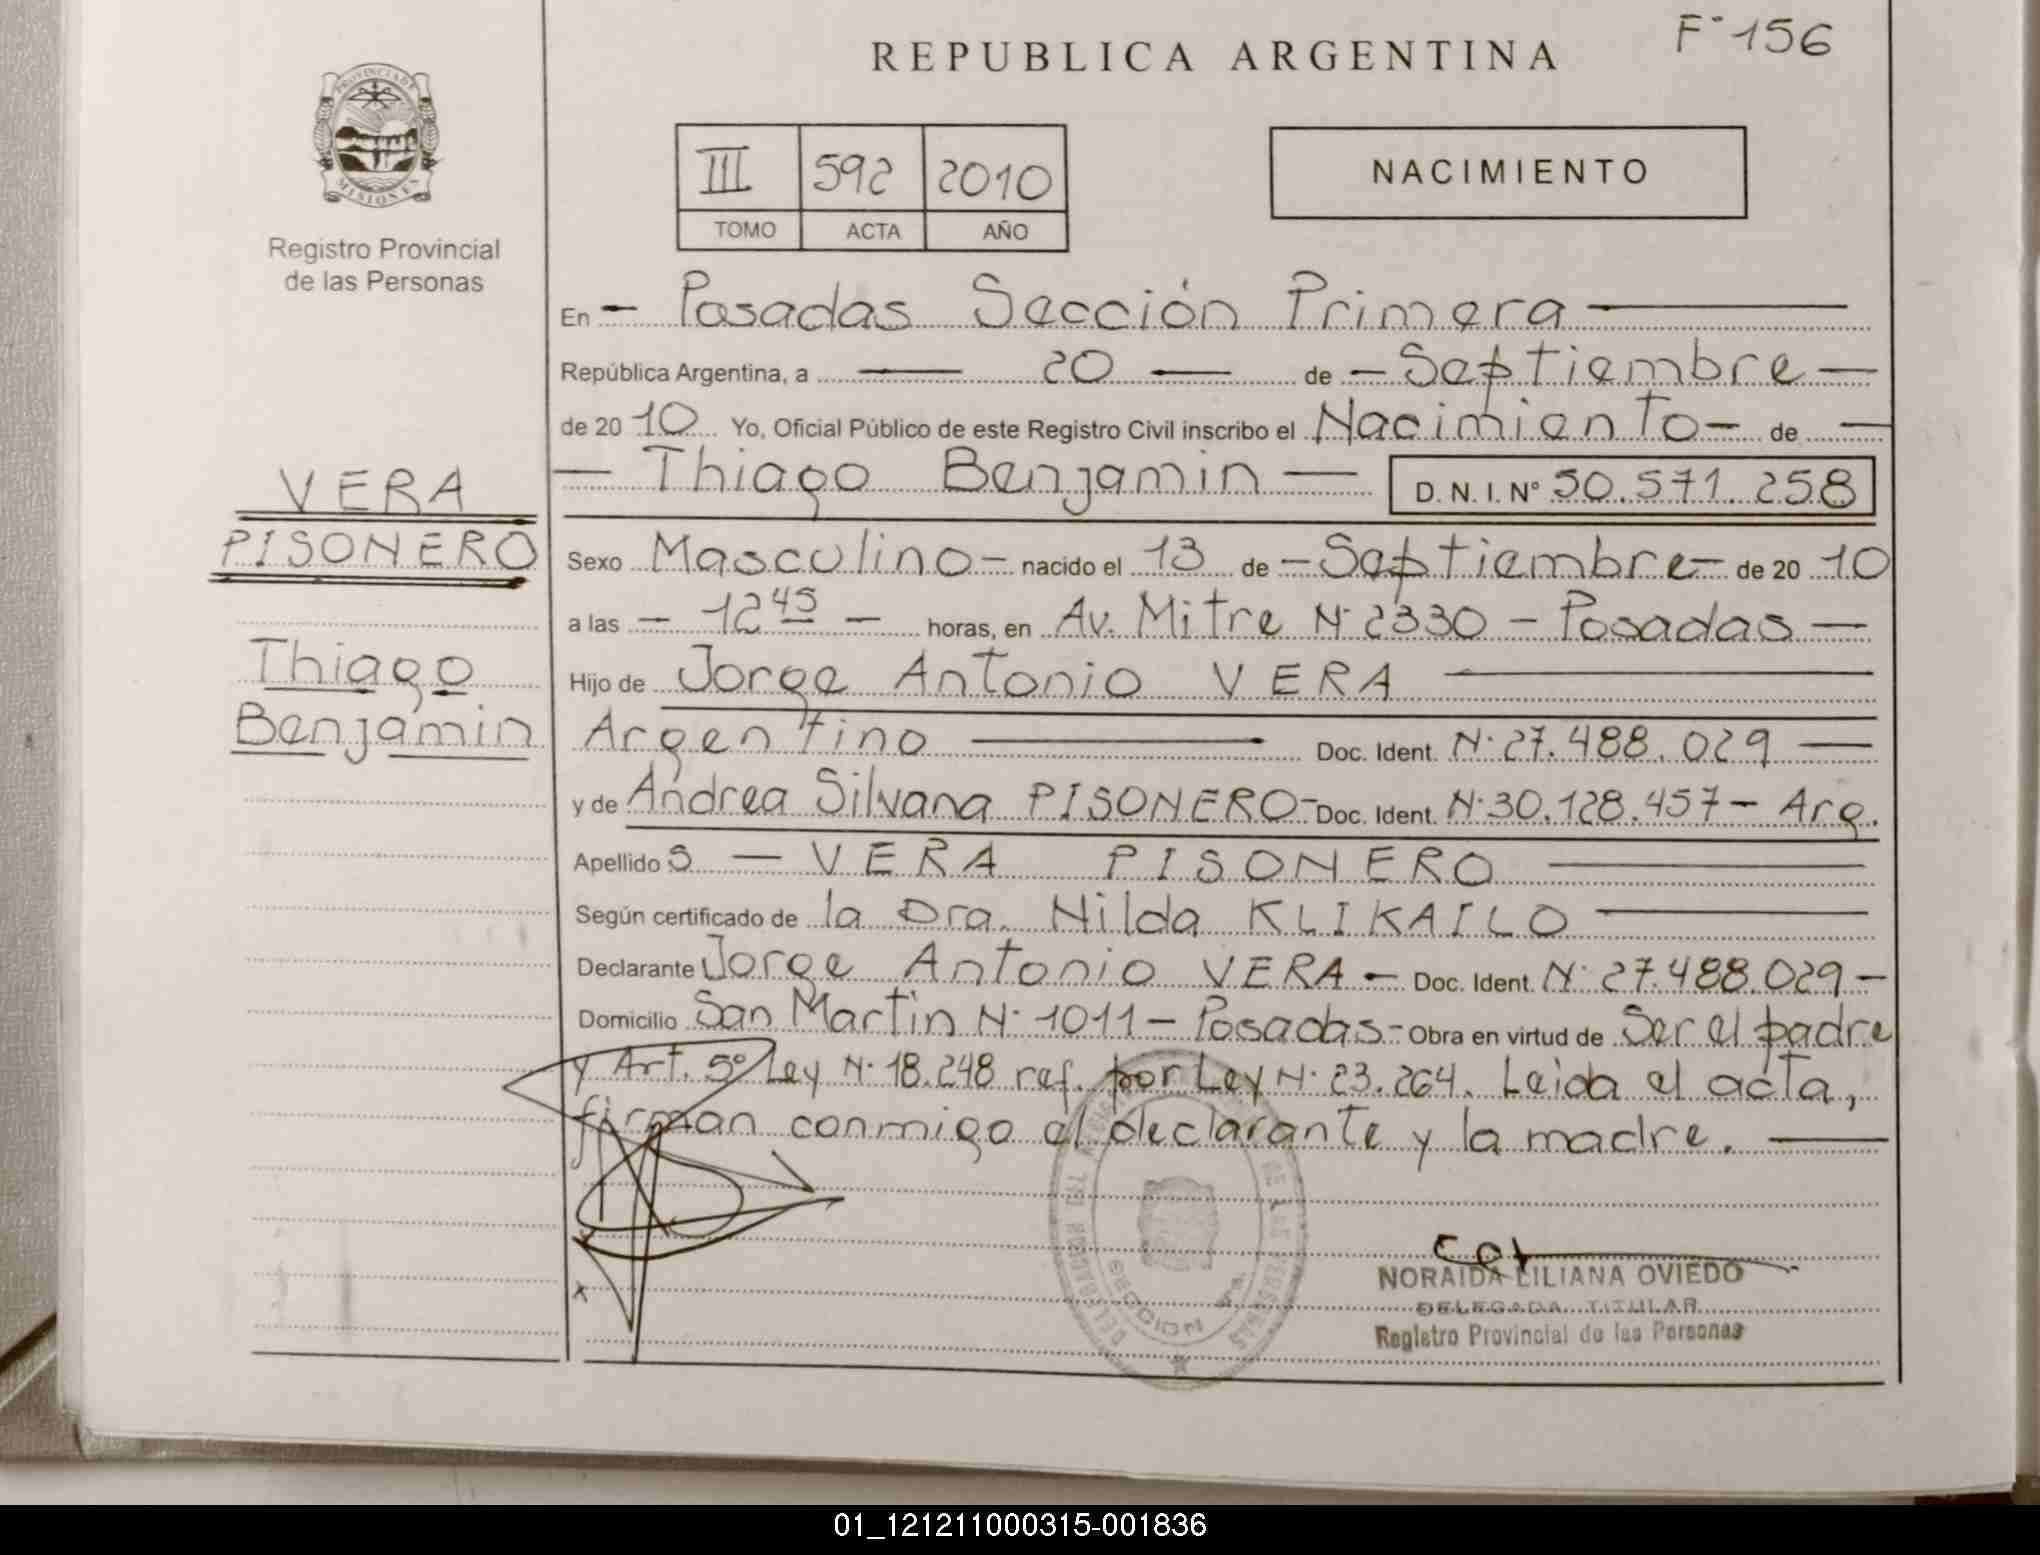 REPUBLICA ARGENTINA
F° 156
PROVINCIA DE
MISIONES
Registro Provincial
de las Personas
III 592 2010
TOMO ACTA AÑO
NACIMIENTO
En - Posadas Sección Primera
República Argentina, a — 20 — de - Septiembre -
de 2010 Yo, Oficial Público de este Registro Civil inscribo el Nacimiento - de -
— Thiago Benjamin — D.N.I. N° 50.571.258
VERA
PISONERO
Thiago
Benjamin
Sexo Masculino - nacido el 13 de - Septiembre - de 2010
a las - 12 45 - horas, en Av. Mitre N° 2330 - Posadas -
Hijo de Jorge Antonio VERA
Argentino — Doc. Ident. N° 27.488.029 —
y de Andrea Silvana PISONERO - Doc. Ident. N° 30.128.457 - Arg.
Apellidos — VERA PISONERO
Según certificado de la Dra. Nilda KLIKAILO
Declarante Jorge Antonio VERA - Doc. Ident. N° 27.488.029 -
Domicilio San Martin N° 1011 - Posadas - Obra en virtud de Ser el padre
y Art. 5° Ley N° 18.248 ref. por Ley N° 23.264. Leida el acta,
firman conmigo el declarante y la madre. —
NORAIDA LILIANA OVIEDO
DELEGADA TITULAR
Registro Provincial de las Personas
01_121211000315-001836